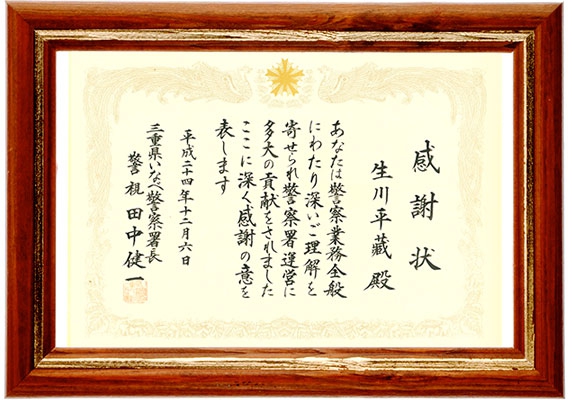 感謝状
生川平藏 殿
あなたは警察業務全般
にわたり深いご理解を
寄せられ警察署運営に
多大の貢献をされました
ここに深く感謝の意を
表します
平成二十四年十二月六日
三重県いなべ警察署長
警視 田中健一